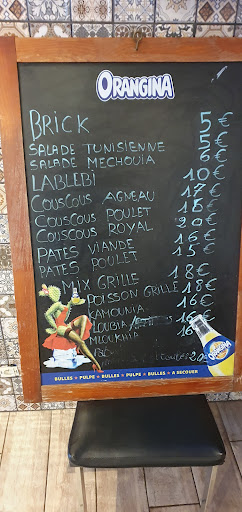 ORANGINA
BRICK 5€
SALADE TUNISIENNE 5€
SALADE MECHOUIA 6€
LABLEBI 10€
COUSCOUS AGNEAU 17€
COUSCOUS POULET 15€
COUSCOUS ROYAL 20€
PATES VIANDE 16€
PATES POULET 15€
MIX GRILLE 18€
POISSON GRILLE 18€
KAMOUNIA 16€
LOUBIA
MLOUKHIA 16€
BULLES ★ PULPE ★ BULLES ★ PULPE ★ BULLES ★ A SECOUER